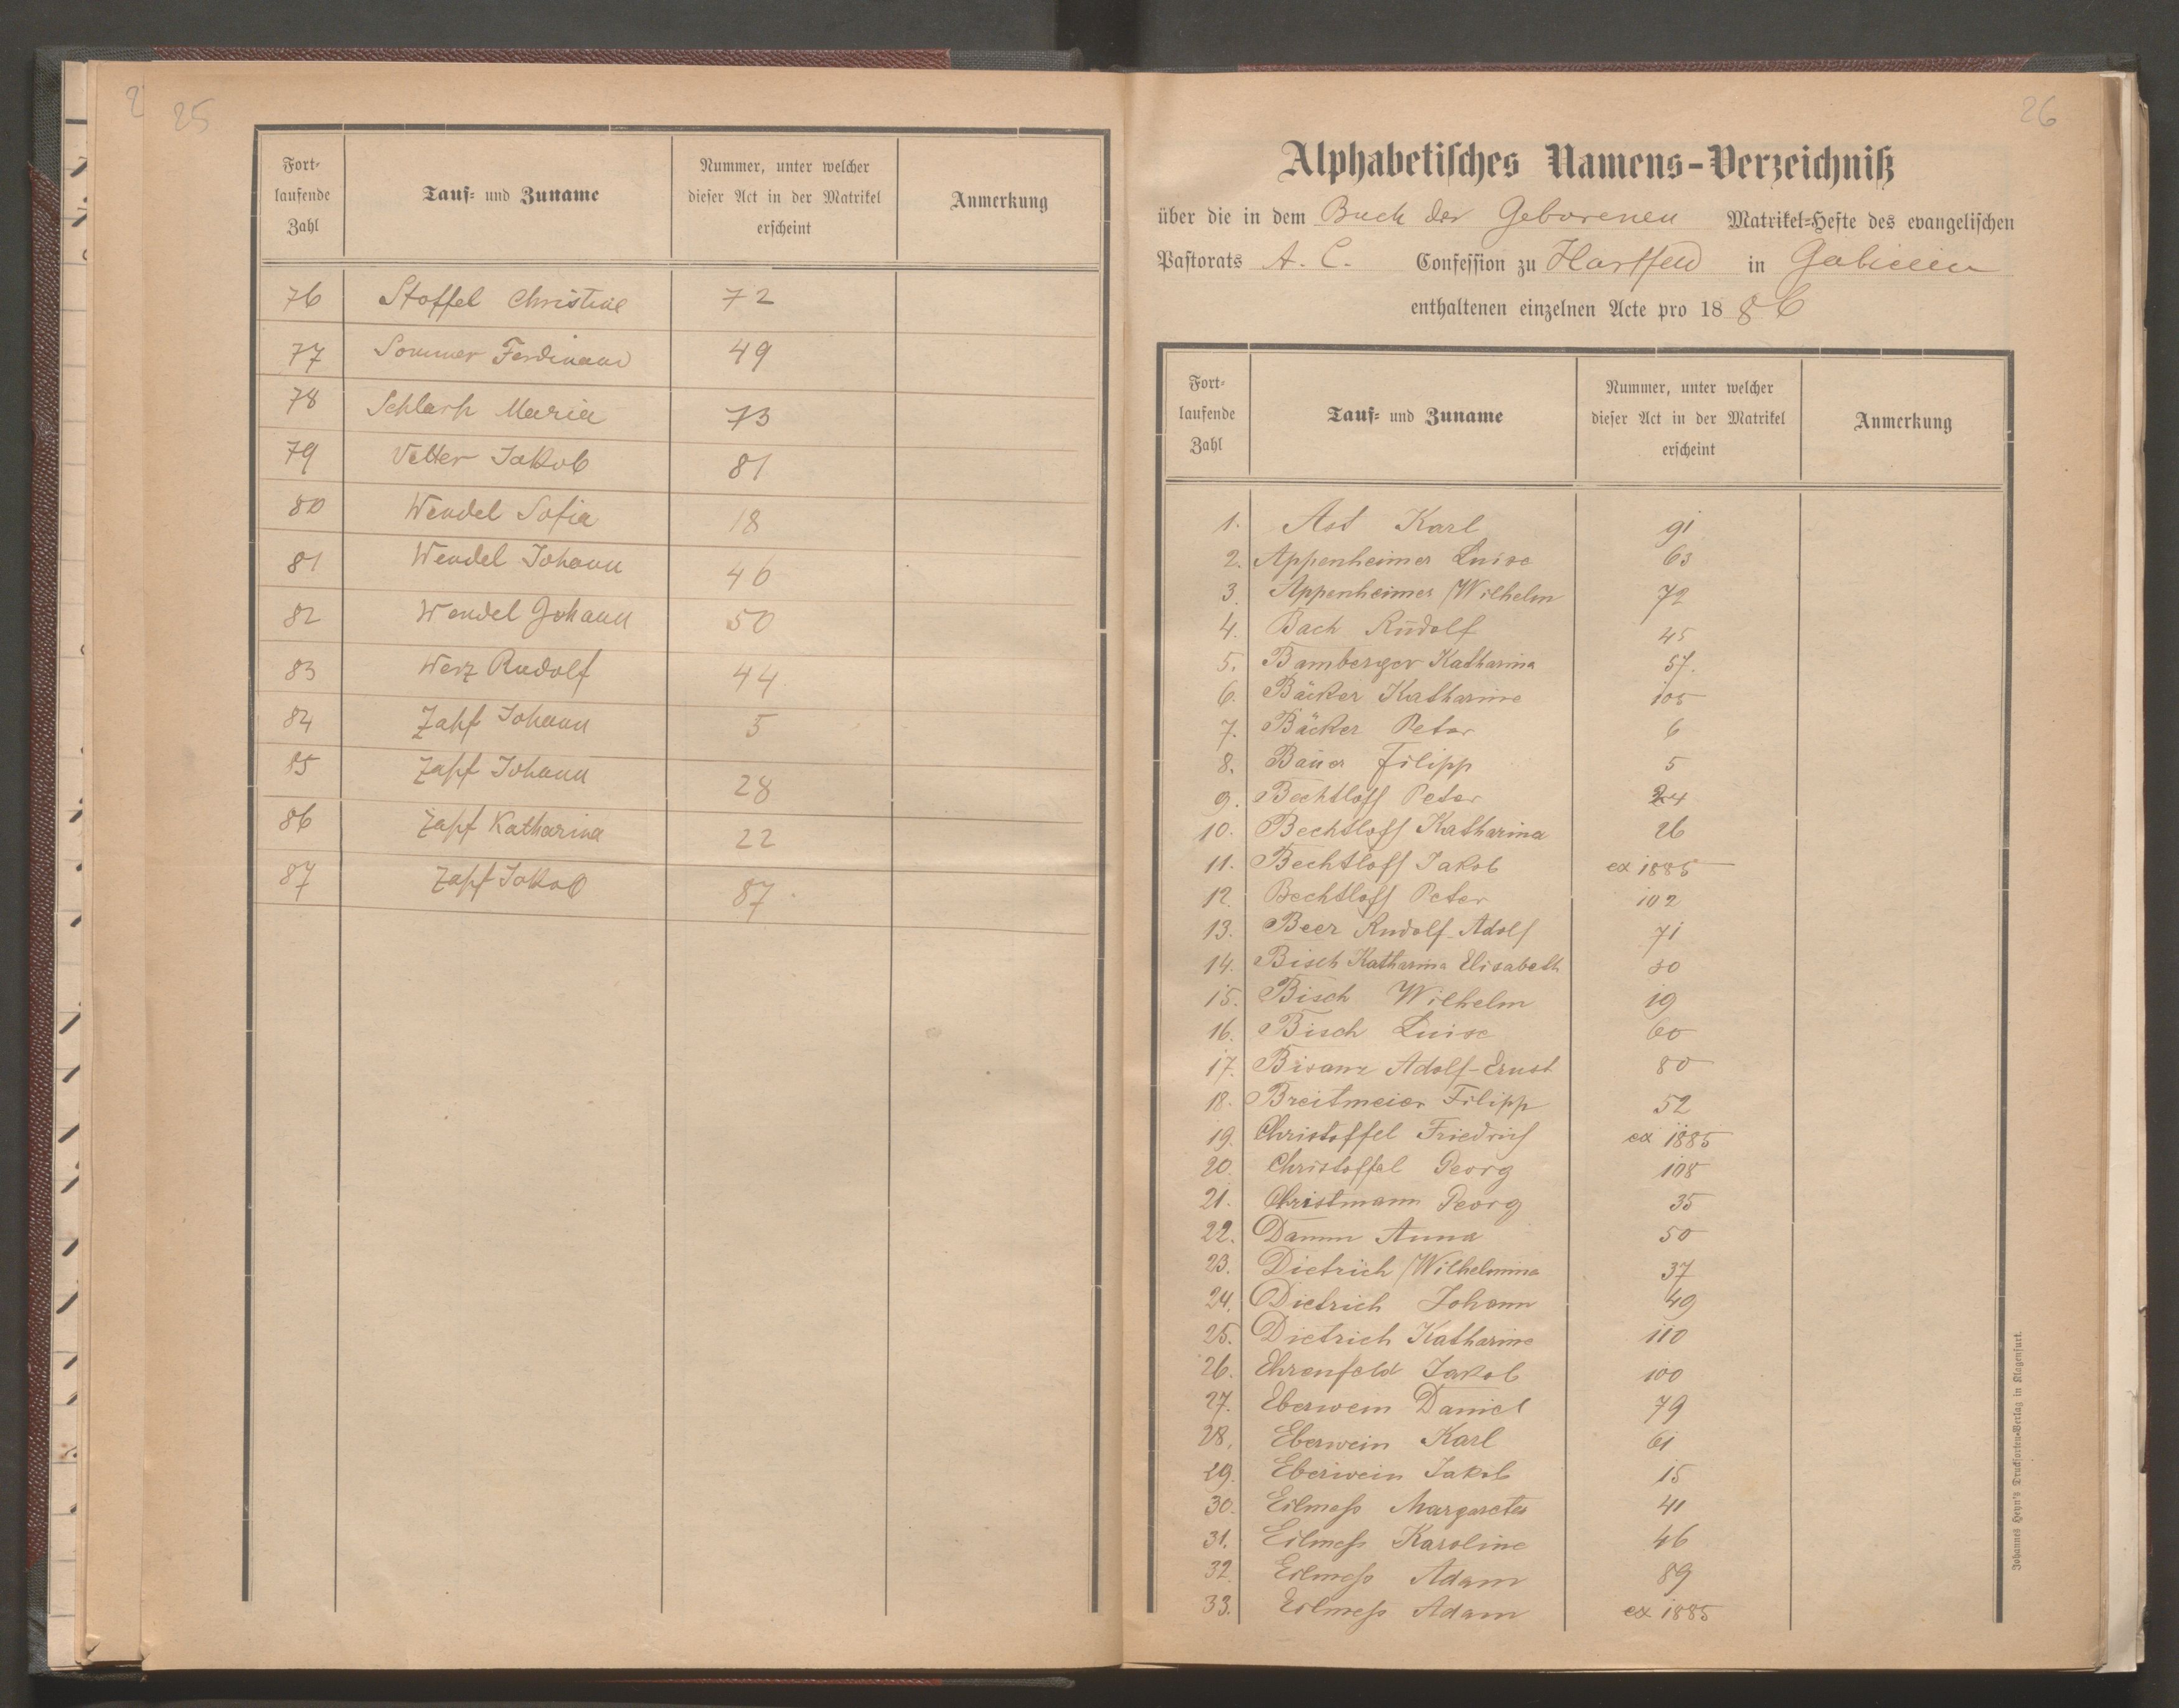 25
Fort-
laufende
Zahl
Tauf- und Zuname
Nummer, unter welcher
dieser Act in der Matrikel
erscheint
Anmerkung
76 Stoffel Christine 72
77 Sommer Ferdinand 49
78 Schlarp Maria 73
79 Vetter Jakob 81
80 Wendel Sofia 18
81 Wendel Johann 46
82 Wendel Johann 50
83 Werz Rudolf 44
84 Zapf Johann 5
85 Zapf Johann 28
86 Zapf Katharina 22
87 Zapf Jakob 87
26
Alphabetisches Namens-Verzeichniß
über die in dem Buch der Geborenen Matrikel-Hefte des evangelischen
Pastorats A. C. Confession zu Hartfeld in Galizien
enthaltenen einzelnen Acte pro 1886
Fort-
laufende
Zahl
Tauf- und Zuname
Nummer, unter welcher
dieser Act in der Matrikel
erscheint
Anmerkung
1. Ast Karl 91
2. Appenheimer Luise 63
3. Appenheimer Wilhelm 72
4. Bach Rudolf 45
5. Bamberger Katharina 57.
6. Bäcker Katharine 105
7. Bäcker Peter 6
8. Bauer Filipp 5
9. Bechtloff Peter 24
10. Bechtloff Katharina 26
11. Bechtloff Jakob ex 1885
12. Bechtloff Peter 102
13. Beer Rudolf Adolf 71
14. Bisch Katharina Elisabeth 30
15. Bisch Wilhelm 19
16. Bisch Luise 60
17. Bisanz Adolf-Ernst 80
18. Breitmeier Filipp 52
19. Christoffel Friedrich ex 1885
20. Christoffel Georg 108
21. Christmann Georg 35
22. Damm Anna 50
23. Dietrich Wilhelmina 37
24. Dietrich Johann 49
25. Dietrich Katharine 110
26. Ehrenfeld Jakob 100
27. Eberwein Daniel 79
28. Eberwein Karl 61
29. Eberwein Jakob 15
30. Eilmeß Margaretha 41
31. Eilmeß Karoline 46
32. Eilmeß Adam 89
33. Eilmeß Adam ex 1885
Johannes Heyn's Drucksorten-Verlag in Klagenfurt.